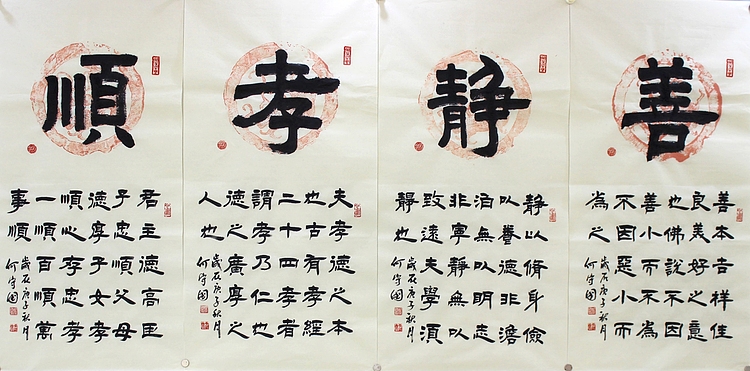 善
善本吉祥佳
良美好之意
也佛說不因
善小而不為
不因惡小而
為之
歲在庚子秋月
何守國
静
静以脩身儉
以養德非澹
泊無以明志
非寧静無以
致遠夫學須
静也
歲在庚子秋月
何守國
孝
夫孝德之本
也古有孝經
二十四孝者
謂孝乃仁也
德之廣尊之
人也
歲在庚子秋月
何守國
順
君主德高臣
子忠順父母
德尊子女孝
順心存忠孝
一順百順萬
事順
歲在庚子秋月
何守國